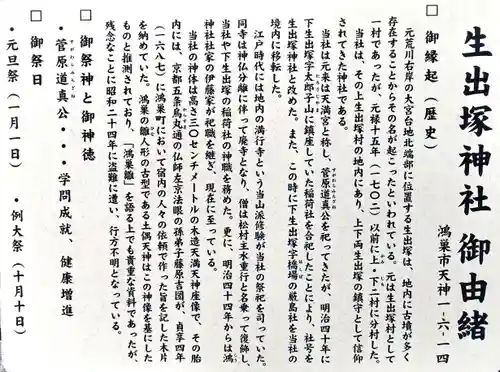 生出塚神社 御由緒
鴻巣市天神一-六-一四
□ 御縁起（歴史）
元荒川右岸の大宮台地北端部に位置する生出塚は、地内に古墳が多く
存在することからその名が起こったといわれている。元は生出塚村として
一村であったが、元禄十五年（一七〇二）以前に上・下二村に分村した。
当社は、その上生出塚村の地内にあり、上下両生出塚の鎮守として信仰
されてきた神社である。
当社は元来は天満宮と称し、菅原道真公を祀ってきたが、明治四十年に
下生出塚字太郎子山に鎮座していた稲荷社を合祀したことにより、社号を
生出塚神社と改めた。また、この時に下生出塚字橋場の厳島社を当社の
境内に移転した。
江戸時代には地内の満行寺という当山派修験が当社の祭祀を司っていた。
同寺は神仏分離に伴って廃寺となり、僧は松村主水重行と名乗って復飾し、
当社や下生出塚の稲荷社の神職を務めた。更に、明治四十四年からは鴻
神社社家の伊藤家が祀職を継ぎ、現在に至っている。
当社の神体は高さ三〇センチメートルの木造天満天神座像で、その胎
内には、京都五条烏丸通の仏師左京法眼の孫弟子藤原吉圀が、貞享四年
（一六八七）に鴻巣町において宿内の人々の依頼で作った旨を記した木片
を納めていた。鴻巣の雛人形の古型である土偶天神はこの神像を基にした
ものと推測されており、「鴻巣雛」を語る上でも貴重な資料であったが、
残念なことに昭和二十四年に盗難に遭い、行方不明となっている。
□ 御祭神と御神徳
・菅原道真公・・・学問成就 健康増進
□ 御祭日
・元旦祭（一月一日） ・例大祭（十月十日）